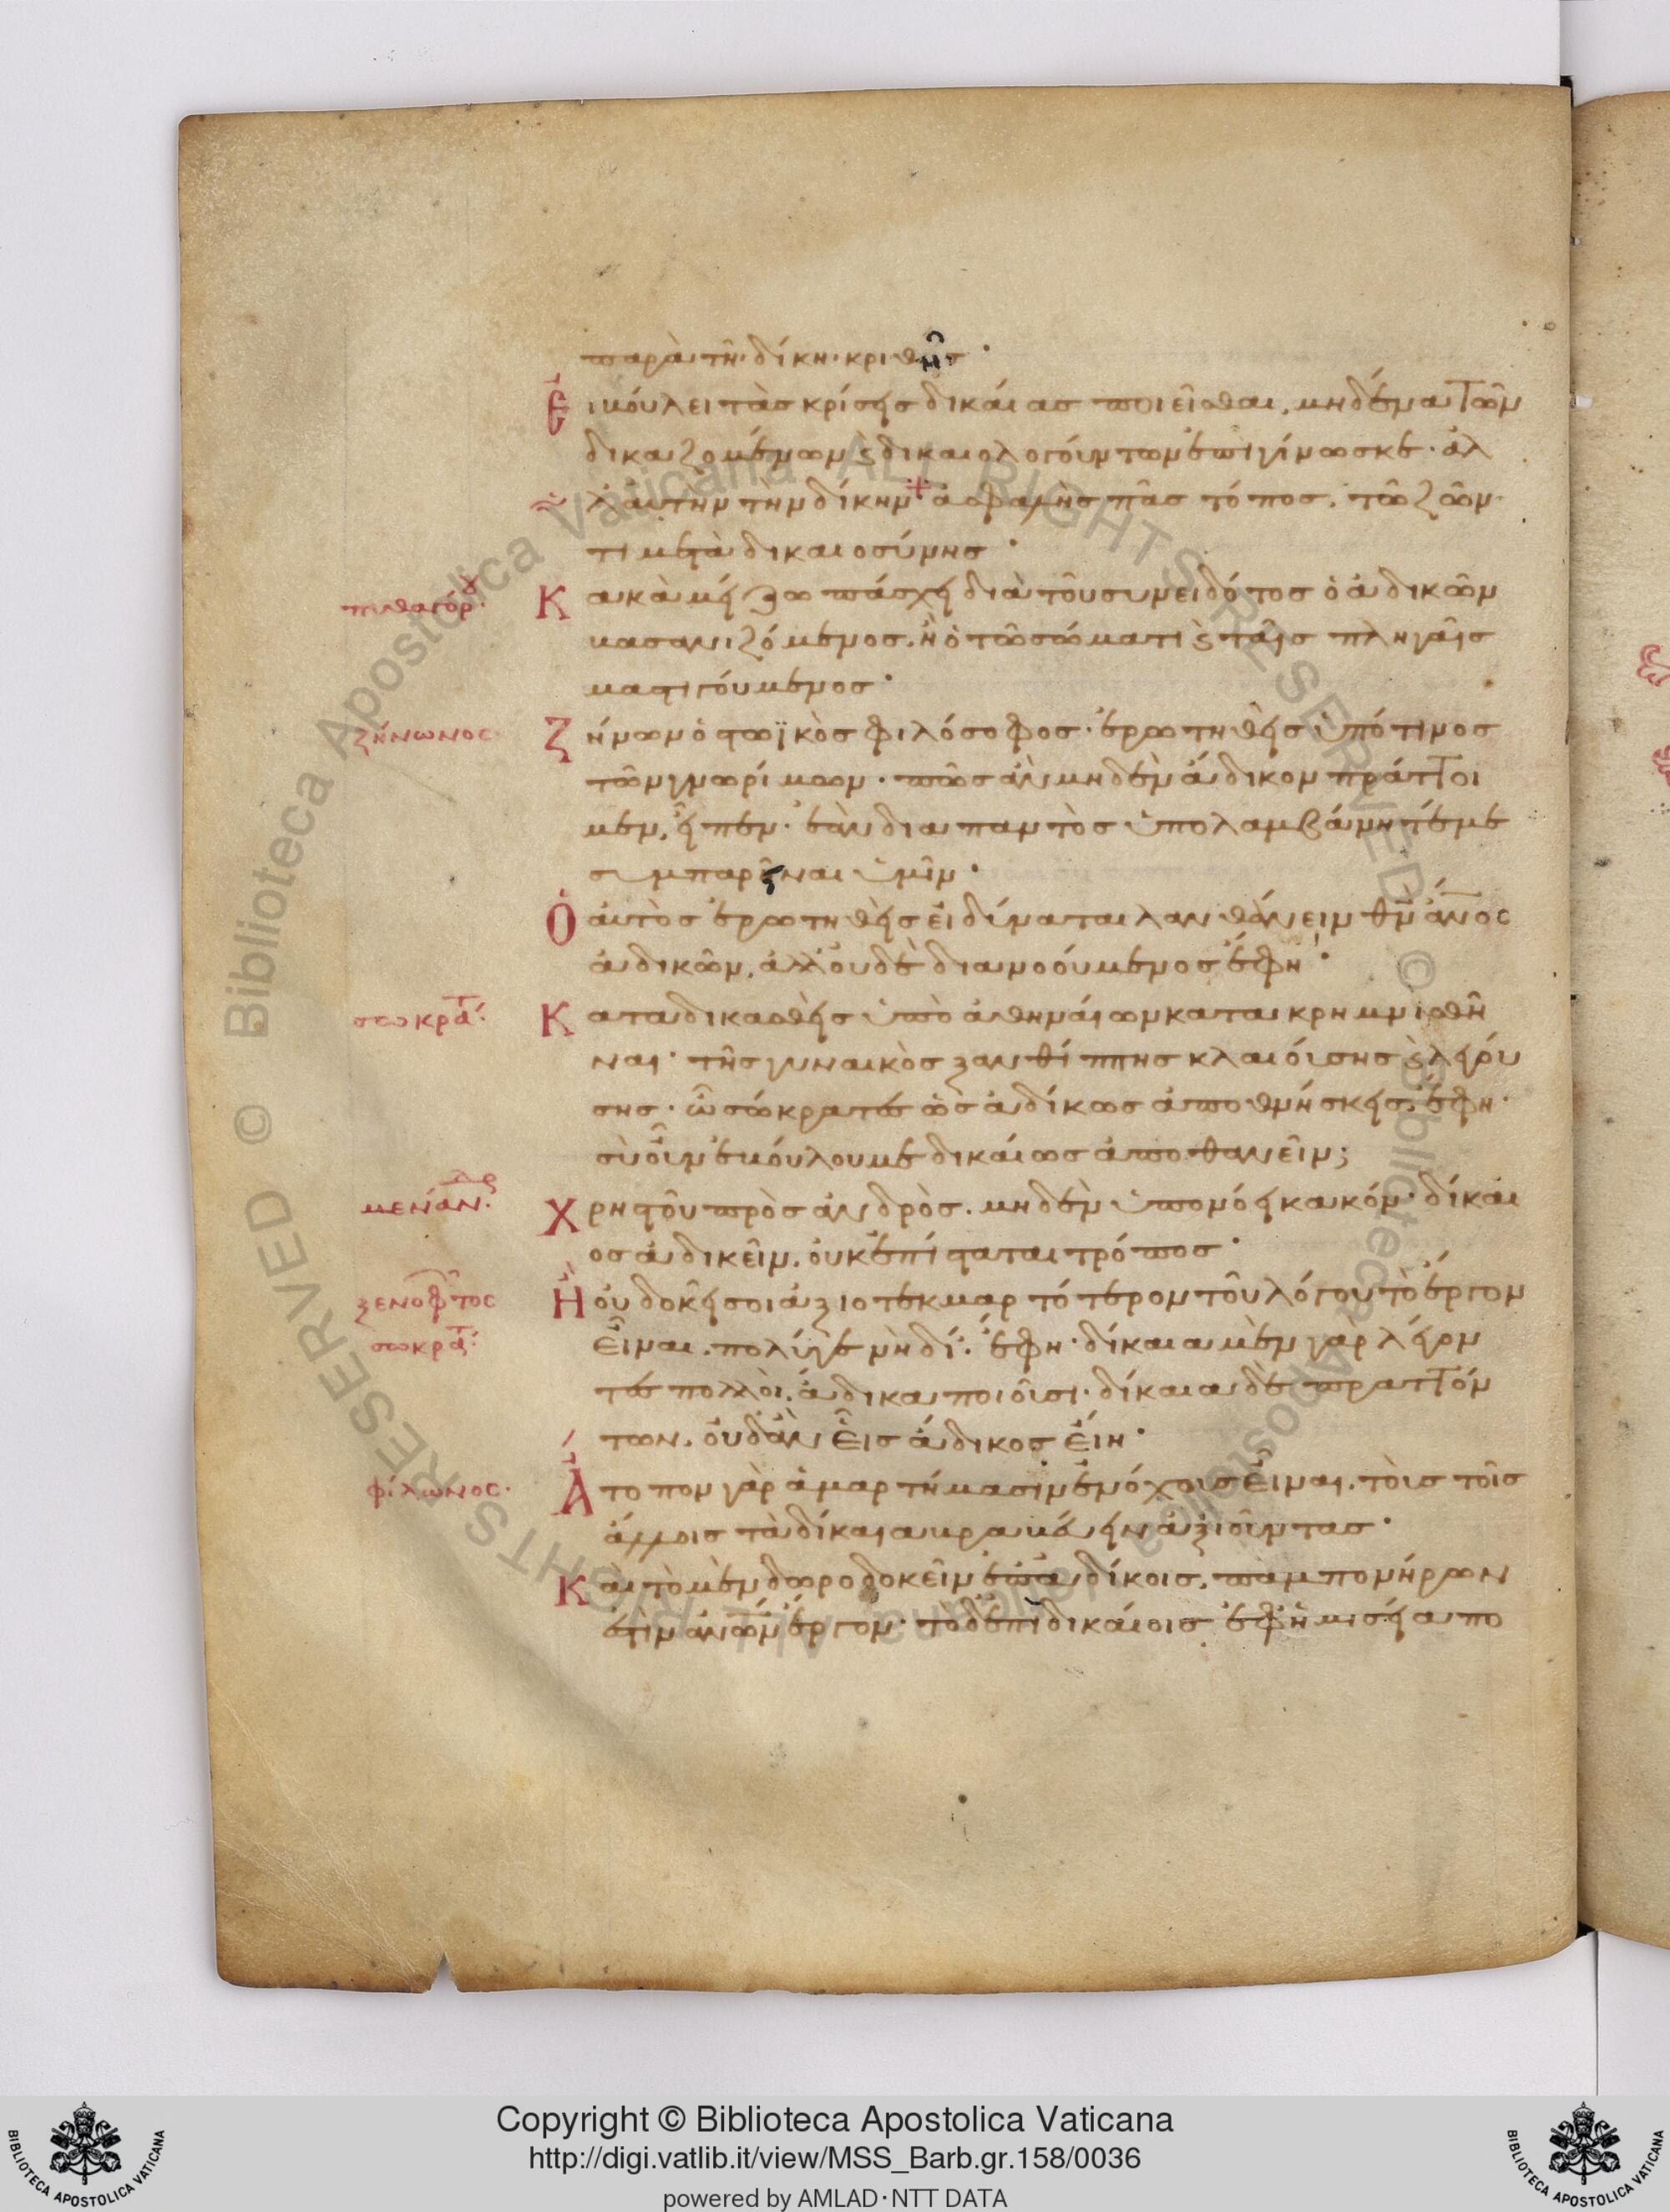 παρὰ τῆ δίκη κριθῆς·
Εἰ βούλει τὰς κρίσεις δικαίας ποιεῖσθαι, μηδένα τῶν
δικαζομένων ϗ δικαιολογούντων ἐπιγίνωσκε· ἀλ
λ' αὐτὴν τὴν δίκην· ἀσφαλὴς πᾶς τόπος, τῶ ζῶν
τι μετὰ δικαιοσύνης·
πυθαγόρου
Κακὰ μείζω πάσχει διὰ τοῦ συνειδότος ὁ ἀδικῶν
βασανιζόμενος, ἢ ὁ τῶ σώματι ϗ ταῖς πληγαῖς
μαστιγούμενος·
ζήνωνος
Ζήνων ὁ στωϊκὸς φιλόσοφος· ἐρωτηθεὶς ὑπό τινος
τῶν γνωρίμων· πῶς ἂν μηδὲν ἄδικον πράττοι
μεν, εἶπεν· ἐὰν διαπαντὸς ὑπολαμβάνητέ με
συμπαρεῖναι ὑμῖν·
Ὁ αὐτὸς ἐρωτηθεὶς εἰ δύναται λανθάνειν θν ἄνος
ἀδικῶν, ἀλλ' οὐδὲ διανοούμενος ἔφη·
σωκρατ
Καταδικασθεὶς ὑπὸ ἀθηναίων κατακρημνισθῆ
ναι· τῆς γυναικὸς ξανθίππης κλαιούσης ϗ λεγού
σης· ὦ σώκρατες ὡς ἀδίκως ἀποθνήσκεις, ἔφη·
σὺ οὖν ἐβούλου με δικαίως ἀποθανεῖν;
μενάνδρ
Χρηστοῦ πρὸς ἀνδρὸς, μηδὲν ὑπονόει κακόν· δίκαι
ος ἀδικεῖν, οὐκ ἐπίσταται τρόπος·
ξενοφῶντος
Ἢ οὐ δοκεῖ σοι ἀξιοτεκμαρτότερον τοῦ λόγου τὸ ἔργον
σωκρατ
εἶναι, πολύ γε νὴ δί'. ἔφη· δίκαια μὲν γὰρ λέγον
τες πολλοὶ, ἄδικα ποιοῦσι· δίκαια δὲ πραττόν
των, οὐδ' ἂν εἷς ἄδικος εἴη·
φίλωνος
Ἄτοπον γὰρ ἁμαρτήμασιν ἐνόχους εἶναι, τοὺς τοῖς
ἄλλοις τὰ δίκαια βραβεύειν ἀξιοῦντας·
Καὶ τὸ μὲν δωροδοκεῖν ἐπ' ἀδίκοις, παμπονήρων
ἐστὶν ἀνων ἔργον· τὸ δ' ἐπὶ δικαίοις ἐφ' ἡμισεία πο
Copyright © Biblioteca Apostolica Vaticana
http://digi.vatlib.it/view/MSS_Barb.gr.158/0036
powered by AMLAD·NTT DATA
BIBLIOTECA APOSTOLICA VATICANA
BIBLIOTECA APOSTOLICA VATICANA
Biblioteca Apostolica Vaticana ALL RIGHTS RESERVED ©
Biblioteca Apostolica Vaticana ALL RIGHTS RESERVED ©